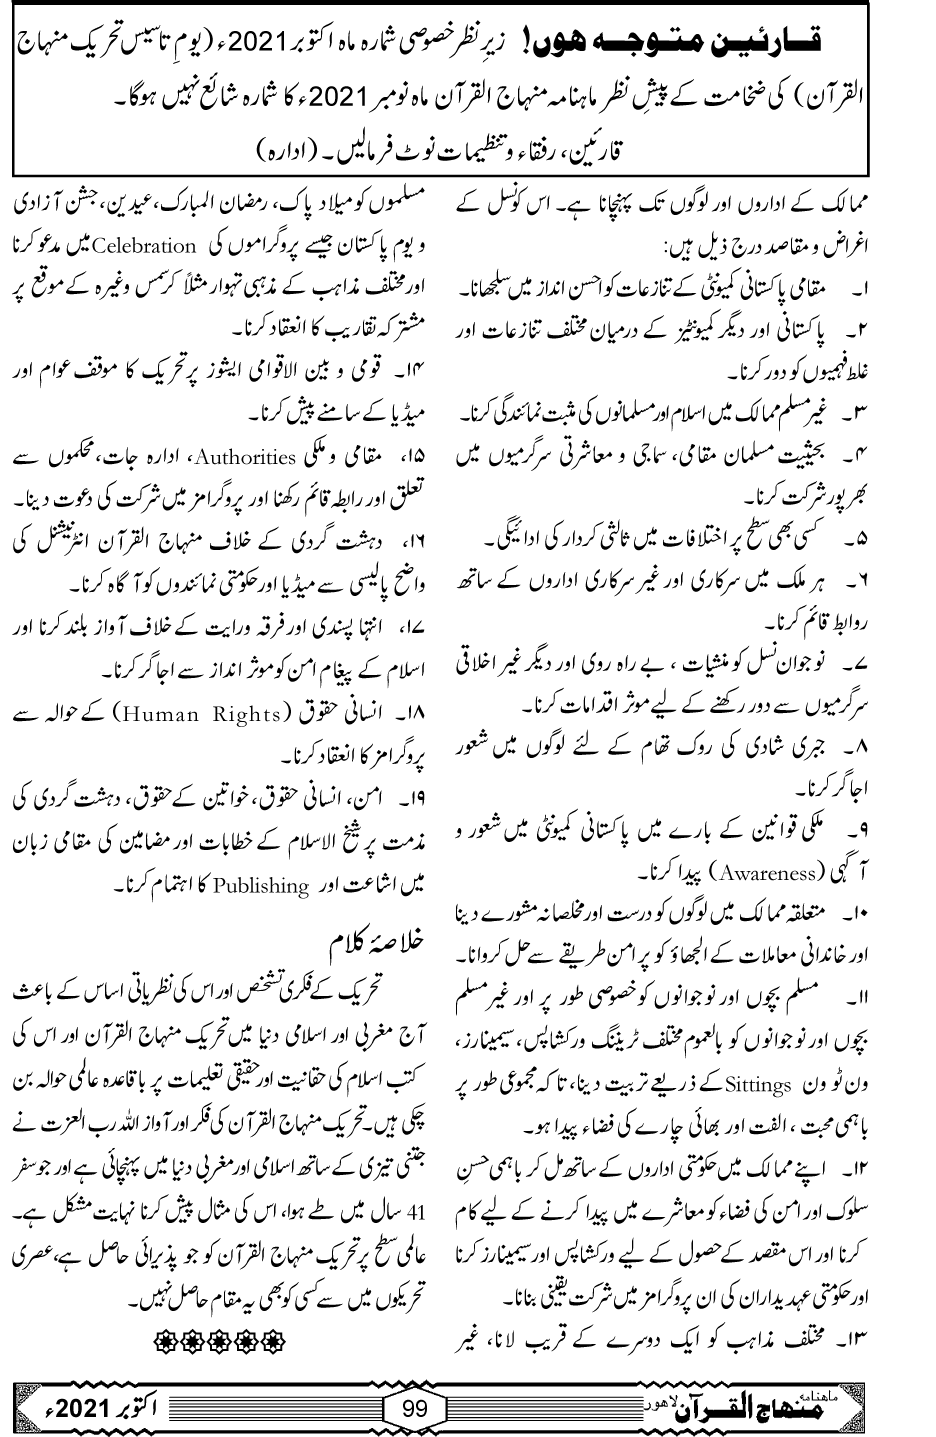 قارئین متوجہ ہوں! زیرِ نظر خصوصی شمارہ ماہ اکتوبر 2021ء (یومِ تاسیس تحریک منہاج
القرآن) کی ضخامت کے پیشِ نظر ماہنامہ منہاج القرآن ماہ نومبر 2021ء کا شمارہ شائع نہیں ہوگا۔
قارئین، رفقاء و تنظیمات نوٹ فرمالیں۔ (ادارہ)
ممالک کے اداروں اور لوگوں تک پہنچانا ہے۔ اس کونسل کے
اغراض و مقاصد درج ذیل ہیں:
۱۔ مقامی پاکستانی کمیونٹی کے تنازعات کو احسن انداز میں سلجھانا۔
۲۔ پاکستانی اور دیگر کمیونٹیز کے درمیان مختلف تنازعات اور
غلط فہمیوں کو دور کرنا۔
۳۔ غیر مسلم ممالک میں اسلام اور مسلمانوں کی مثبت نمائندگی کرنا۔
۴۔ بحیثیت مسلمان مقامی، سماجی و معاشرتی سرگرمیوں میں
بھرپور شرکت کرنا۔
۵۔ کسی بھی سطح پر اختلافات میں ثالثی کردار کی ادائیگی۔
۶۔ ہر ملک میں سرکاری اور غیر سرکاری اداروں کے ساتھ
روابط قائم کرنا۔
۷۔ نوجوان نسل کو منشیات ، بے راہ روی اور دیگر غیر اخلاقی
سرگرمیوں سے دور رکھنے کے لیے موثر اقدامات کرنا۔
۸۔ جبری شادی کی روک تھام کے لئے لوگوں میں شعور
اجاگر کرنا۔
۹۔ ملکی قوانین کے بارے میں پاکستانی کمیونٹی میں شعور و
آگہی (Awareness) پیدا کرنا۔
۱۰۔ متعلقہ ممالک میں لوگوں کو درست اور مخلصانہ مشورے دینا
اور خاندانی معاملات کے الجھاؤ کو پرامن طریقے سے حل کروانا۔
۱۱۔ مسلم بچوں اور نوجوانوں کو خصوصی طور پر اور غیر مسلم
بچوں اور نوجوانوں کو بالعموم مختلف ٹریننگ ورکشاپس، سیمینارز،
ون ٹو ون Sittings کے ذریعے تربیت دینا، تاکہ مجموعی طور پر
باہمی محبت ، الفت اور بھائی چارے کی فضاء پیدا ہو۔
۱۲۔ اپنے ممالک میں حکومتی اداروں کے ساتھ مل کر باہمی حسنِ
سلوک اور امن کی فضاء کو معاشرے میں پیدا کرنے کے لیے کام
کرنا اور اس مقصد کے حصول کے لیے ورکشاپس اور سیمینارز کرنا
اور حکومتی عہدیداران کی ان پروگرامز میں شرکت یقینی بنانا۔
۱۳۔ مختلف مذاہب کو ایک دوسرے کے قریب لانا، غیر
مسلموں کو میلاد پاک، رمضان المبارک، عیدین، جشن آزادی
و یوم پاکستان جیسے پروگراموں کی Celebration میں مدعو کرنا
اور مختلف مذاہب کے مذہبی تہوار مثلاً کرسمس وغیرہ کے موقع پر
مشترکہ تقاریب کا انعقاد کرنا۔
۱۴۔ قومی و بین الاقوامی ایشوز پر تحریک کا موقف عوام اور
میڈیا کے سامنے پیش کرنا۔
۱۵، مقامی و ملکی Authorities، ادارہ جات، محکموں سے
تعلق اور رابطہ قائم رکھنا اور پروگرامز میں شرکت کی دعوت دینا۔
۱۶، دہشت گردی کے خلاف منہاج القرآن انٹرنیشنل کی
واضح پالیسی سے میڈیا اور حکومتی نمائندوں کو آگاہ کرنا۔
۱۷، انتہا پسندی اور فرقہ ورایت کے خلاف آواز بلند کرنا اور
اسلام کے پیغام امن کو موثر انداز سے اجاگر کرنا۔
۱۸۔ انسانی حقوق (Human Rights) کے حوالہ سے
پروگرامز کا انعقاد کرنا۔
۱۹۔ امن، انسانی حقوق، خواتین کے حقوق، دہشت گردی کی
مذمت پر شیخ الاسلام کے خطابات اور مضامین کی مقامی زبان
میں اشاعت اور Publishing کا اہتمام کرنا۔
خلاصۂ کلام
تحریک کے فکری تشخص اور اس کی نظریاتی اساس کے باعث
آج مغربی اور اسلامی دنیا میں تحریک منہاج القرآن اور اس کی
کتب اسلام کی حقانیت اور حقیقی تعلیمات پر باقاعدہ عالمی حوالہ بن
چکی ہیں۔ تحریک منہاج القرآن کی فکر اور آواز اللہ رب العزت نے
جتنی تیزی کے ساتھ اسلامی اور مغربی دنیا میں پہنچائی ہے اور جو سفر
41 سال میں طے ہوا، اس کی مثال پیش کرنا نہایت مشکل ہے۔
عالمی سطح پر تحریک منہاج القرآن کو جو پذیرائی حاصل ہے، عصری
تحریکوں میں سے کسی کو بھی یہ مقام حاصل نہیں۔
ماہنامہ منہاج القرآن لاہور
99
اکتوبر 2021ء